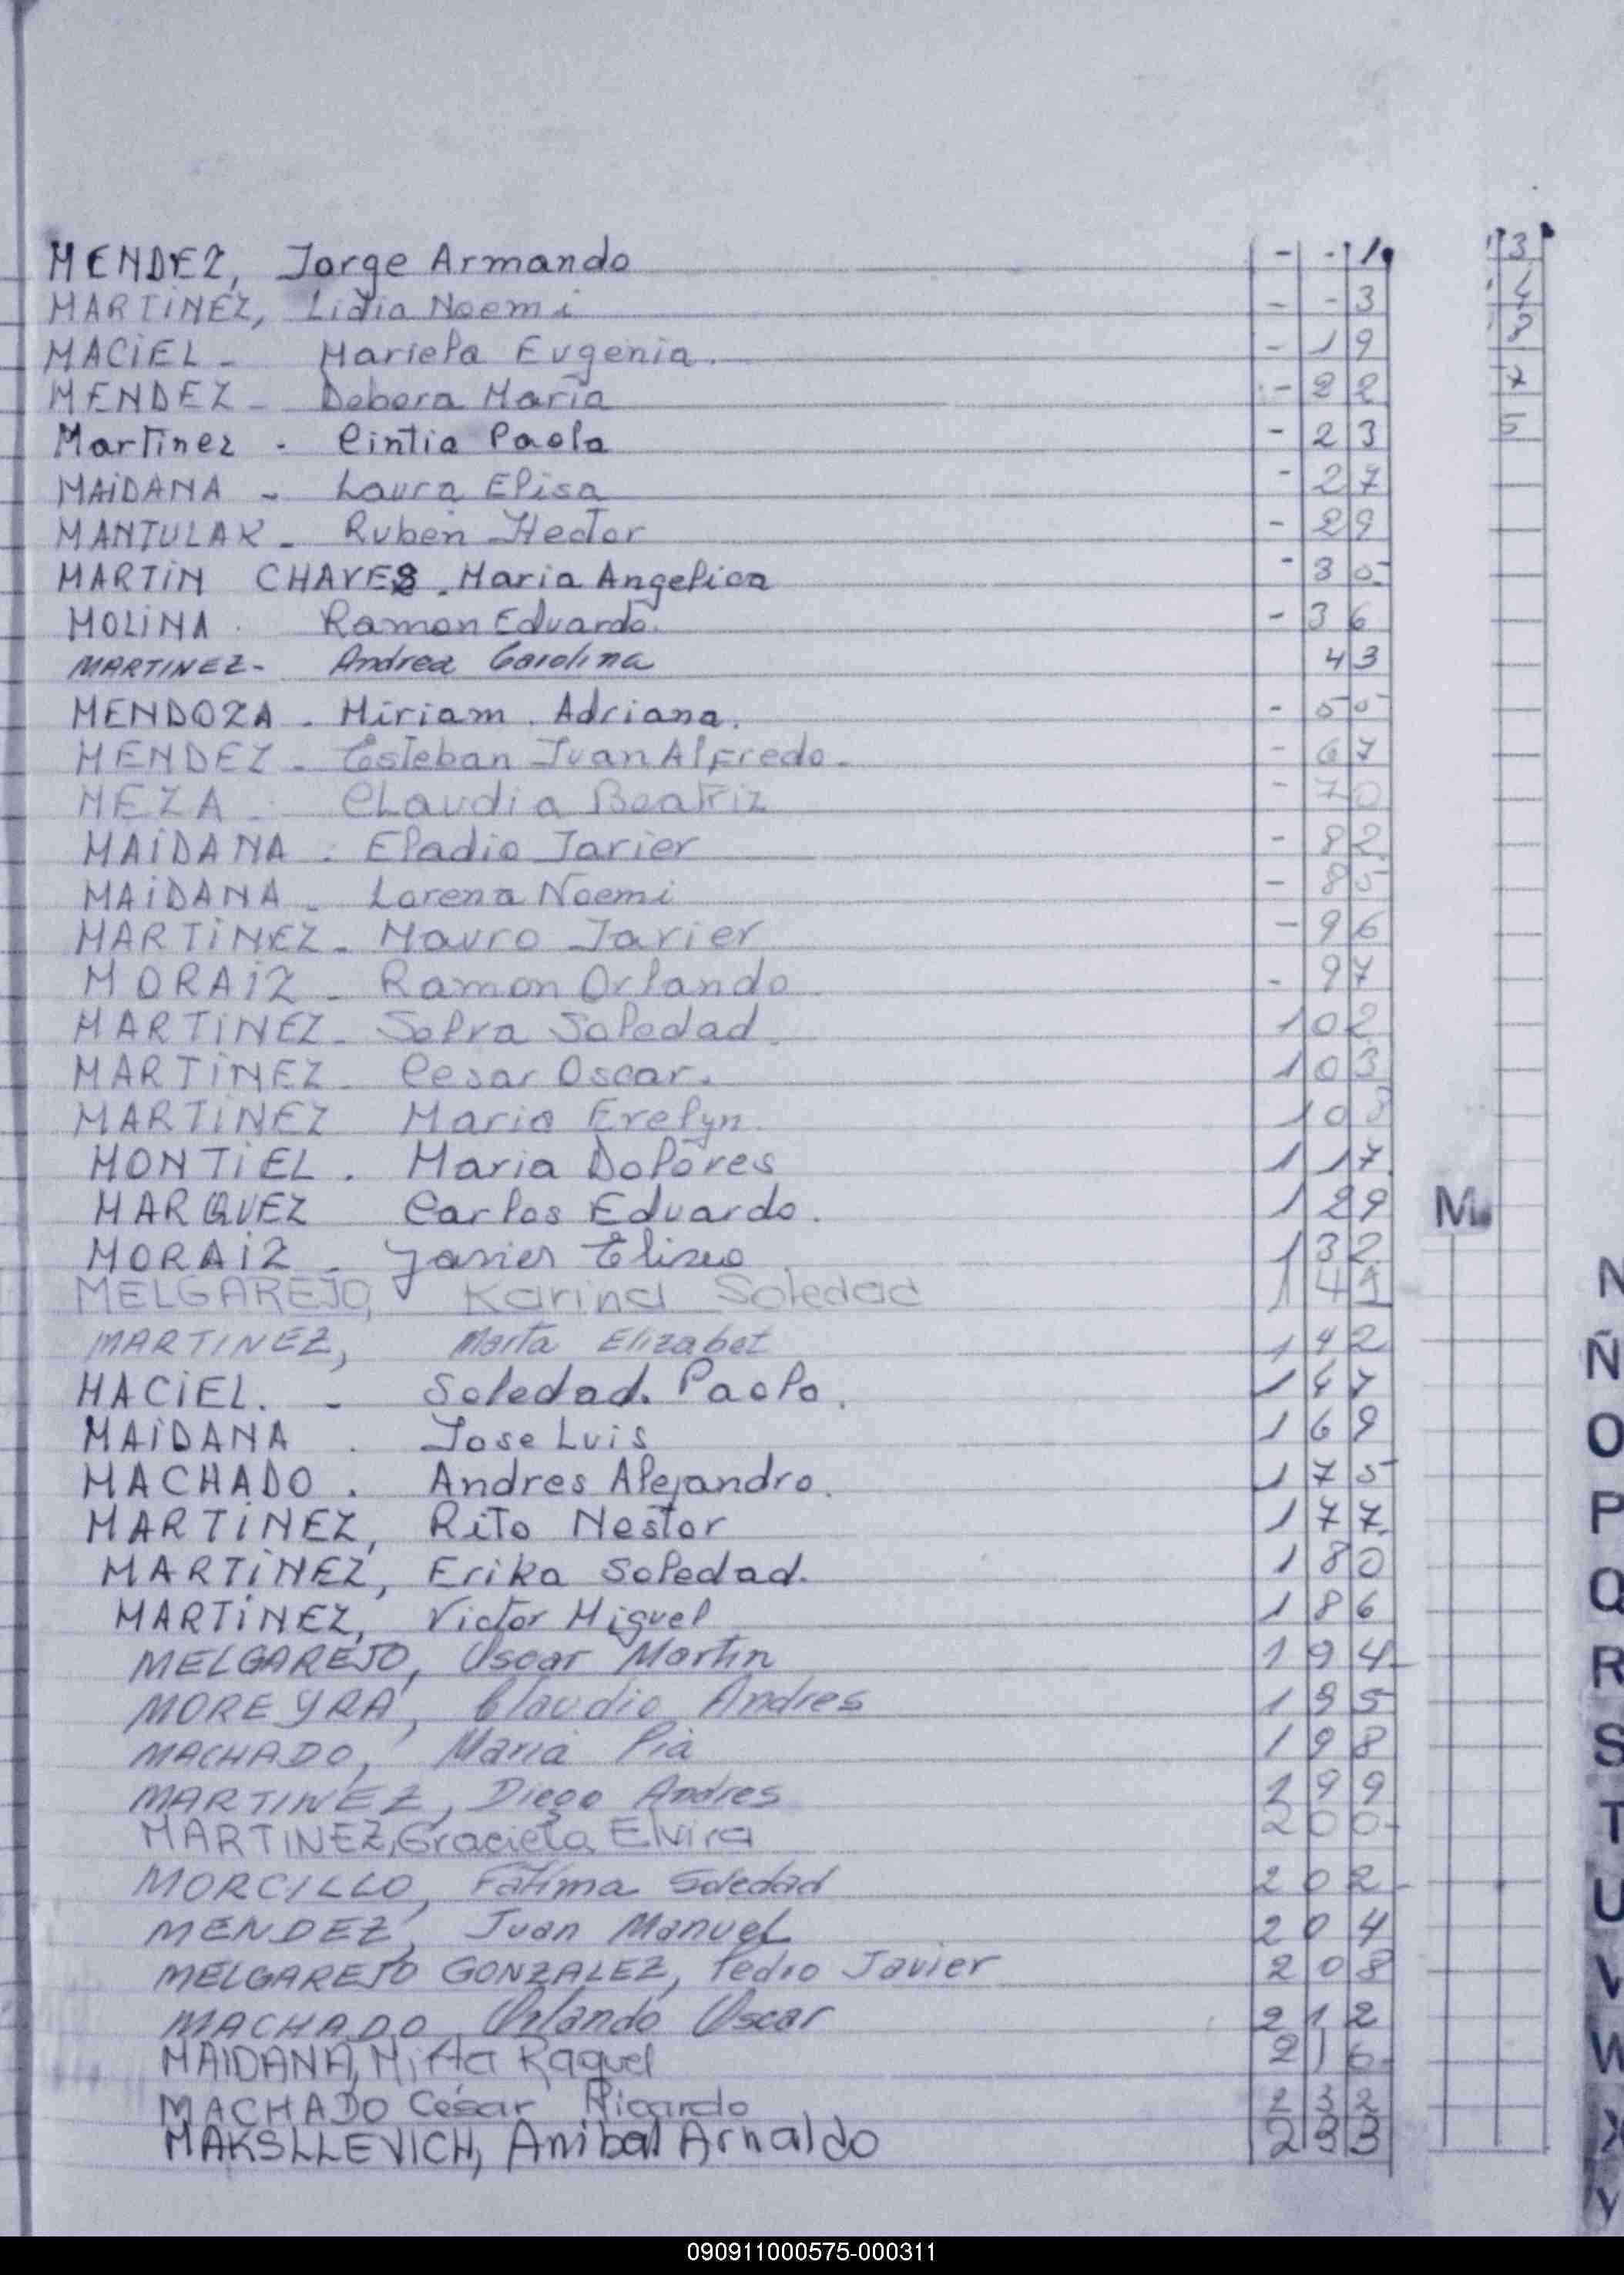 MENDEZ, Jorge Armando - - 1
MARTINEZ, Lidia Noemi - - 3
MACIEL - Mariela Eugenia. - 1 9
MENDEZ - Debora Maria - 2 2
Martinez - Cintia Paola - 2 3
MAIDANA - Laura Elisa - 2 7
MANTULAK - Ruben Hector - 2 9
MARTIN CHAVES. Maria Angelica - 3 0
MOLINA. Ramon Eduardo. - 3 6
MARTINEZ - Andrea Carolina 4 3
MENDOZA - Miriam. Adriana. - 5 0
MENDEZ - Esteban Juan Alfredo - - 6 7
MEZA - Claudia Beatriz - 7 0
MAIDANA. Eladio Javier - 8 2
MAIDANA - Lorena Noemi - 8 5
MARTINEZ - Mauro Javier - 9 6
MORAIZ - Ramon Orlando - 9 7
MARTINEZ - Soledad 1 0 2
MARTINEZ - Cesar Oscar. 1 0 3
MARTINEZ Maria Evelyn 1 0 8
MONTIEL. Maria Dolores 1 1 7
MARQUEZ Carlos Eduardo. 1 2 9
MORAIZ - Javier Eliseo 1 3 2
MELGAREJO, Karina Soledad 1 4 1
MARTINEZ, Marta Elizabet 1 4 2
MACIEL. - Soledad. Paola. 1 4 7
MAIDANA. Jose Luis 1 6 9
MACHADO. Andres Alejandro. 1 7 5
MARTINEZ, Rito Nestor 1 7 7
MARTINEZ, Erika Soledad. 1 8 0
MARTINEZ, Victor Miguel 1 8 6
MELGAREJO, Oscar Martin 1 9 4
MOREYRA, Claudio Andres 1 9 5
MACHADO, Maria Pia 1 9 8
MARTINEZ, Diego Andres 1 9 9
MARTINEZ, Graciela Elvira 2 0 0
MORCILLO, Fatima Soledad 2 0 2
MENDEZ, Juan Manuel 2 0 4
MELGAREJO GONZALEZ, Pedro Javier 2 0 8
MACHADO Orlando Oscar 2 1 2
MAIDANA, Mirta Raquel 2 1 6
MACHADO César Ricardo 2 3 2
MAKSLLEVICH, Anibal Arnaldo 2 3 3
3
4
8
7
5
M
N
Ñ
O
P
Q
R
S
T
U
V
W
X
Y
090911000575-000311